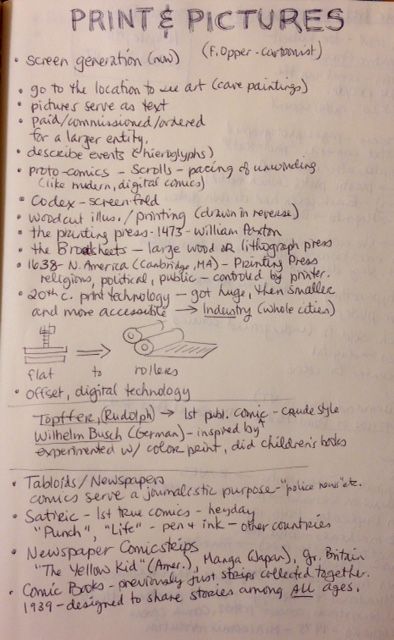 PRINT & PICTURES
• screen generation (now) (F. Opper - cartoonist)
• go to the location to see art (cave paintings)
• pictures serve as text
• paid/commissioned/ordered
for a larger entity.
• describe events (hieroglyphs)
• proto-comics - Scrolls - pacing of unwinding
(like modern, digital comics)
• Codex - screen fold
• woodcut illus. / printing (drawn in reverse)
• the printing press - 1473 - William Paxton
• the Broadsheets - large wood OR lithograph press
• 1638 - N. America (Cambridge, MA) - Printing Press
religions, political, public - controled by printer.
• 20th c. print technology - got huge, then smaller
and more accessible → Industry (whole cities)
flat to rollers
• offset, digital technology
Topffer, (Rudolph) → 1st publ. comic - crude style
Wilhelm Busch (German) - inspired by ↑
experimented w/ color print, did children's books
• Tabloids / Newspapers
comics serve a journalistic purpose - "police news" etc.
• Satiric - 1st true comics - heyday
"Punch", "Life" - pen & ink - other countries
• Newspaper Comicstrips
"The Yellow Kid" (Amer.), Manga (Japan), Gr. Britain
• Comic Books - previously just strips collected together.
1939 - designed to share stories among ALL ages.